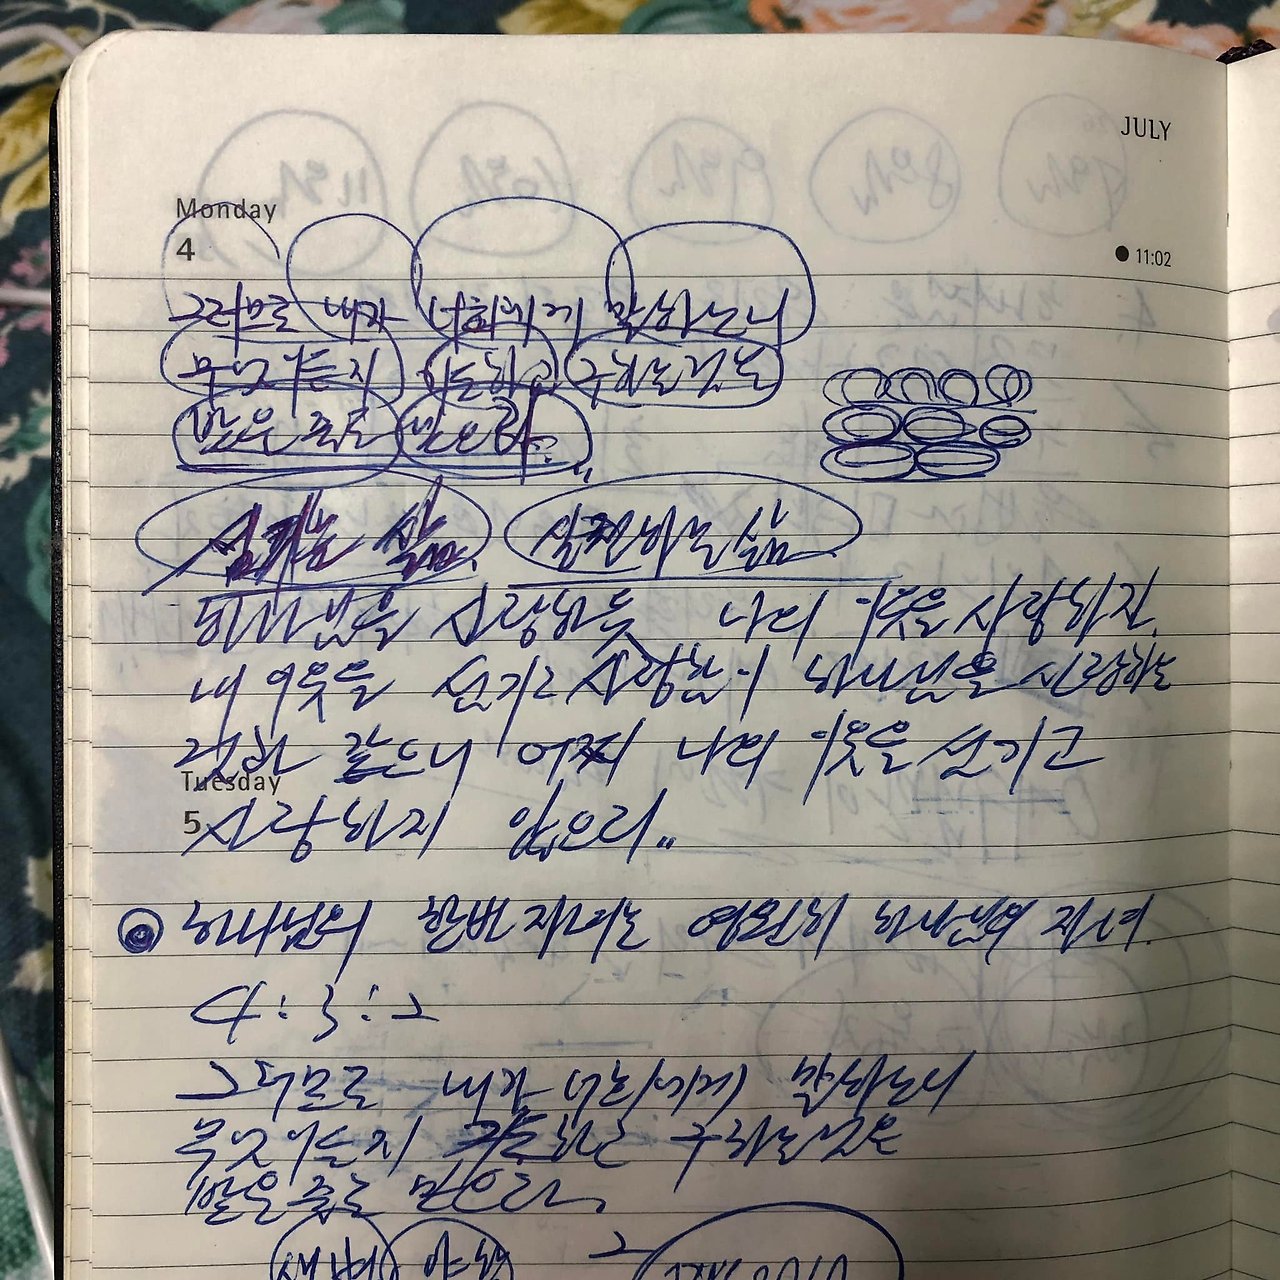 JULY
Monday
4
11:02
그러므로 내가 너희에게 말하노니
무엇이든지 기도하고 구하는것은
받은 줄로 믿으라..
섬기는 삶 실천하는 삶
하나님을 사랑하듯 나의 이웃을 사랑하진
내 이웃을 섬기고 사랑함이 하나님을 사랑하는
것과 같으니 어찌 나의 이웃을 섬기고
Tuesday
5
사랑하지 않으리..
하나님의 한번 자녀는 영원히 하나님의 자녀
4:3:2
그러므로 내가 너희에게 말하노니
무엇이든지 기도하고 구하는것은
받은줄로 믿으라
새벽